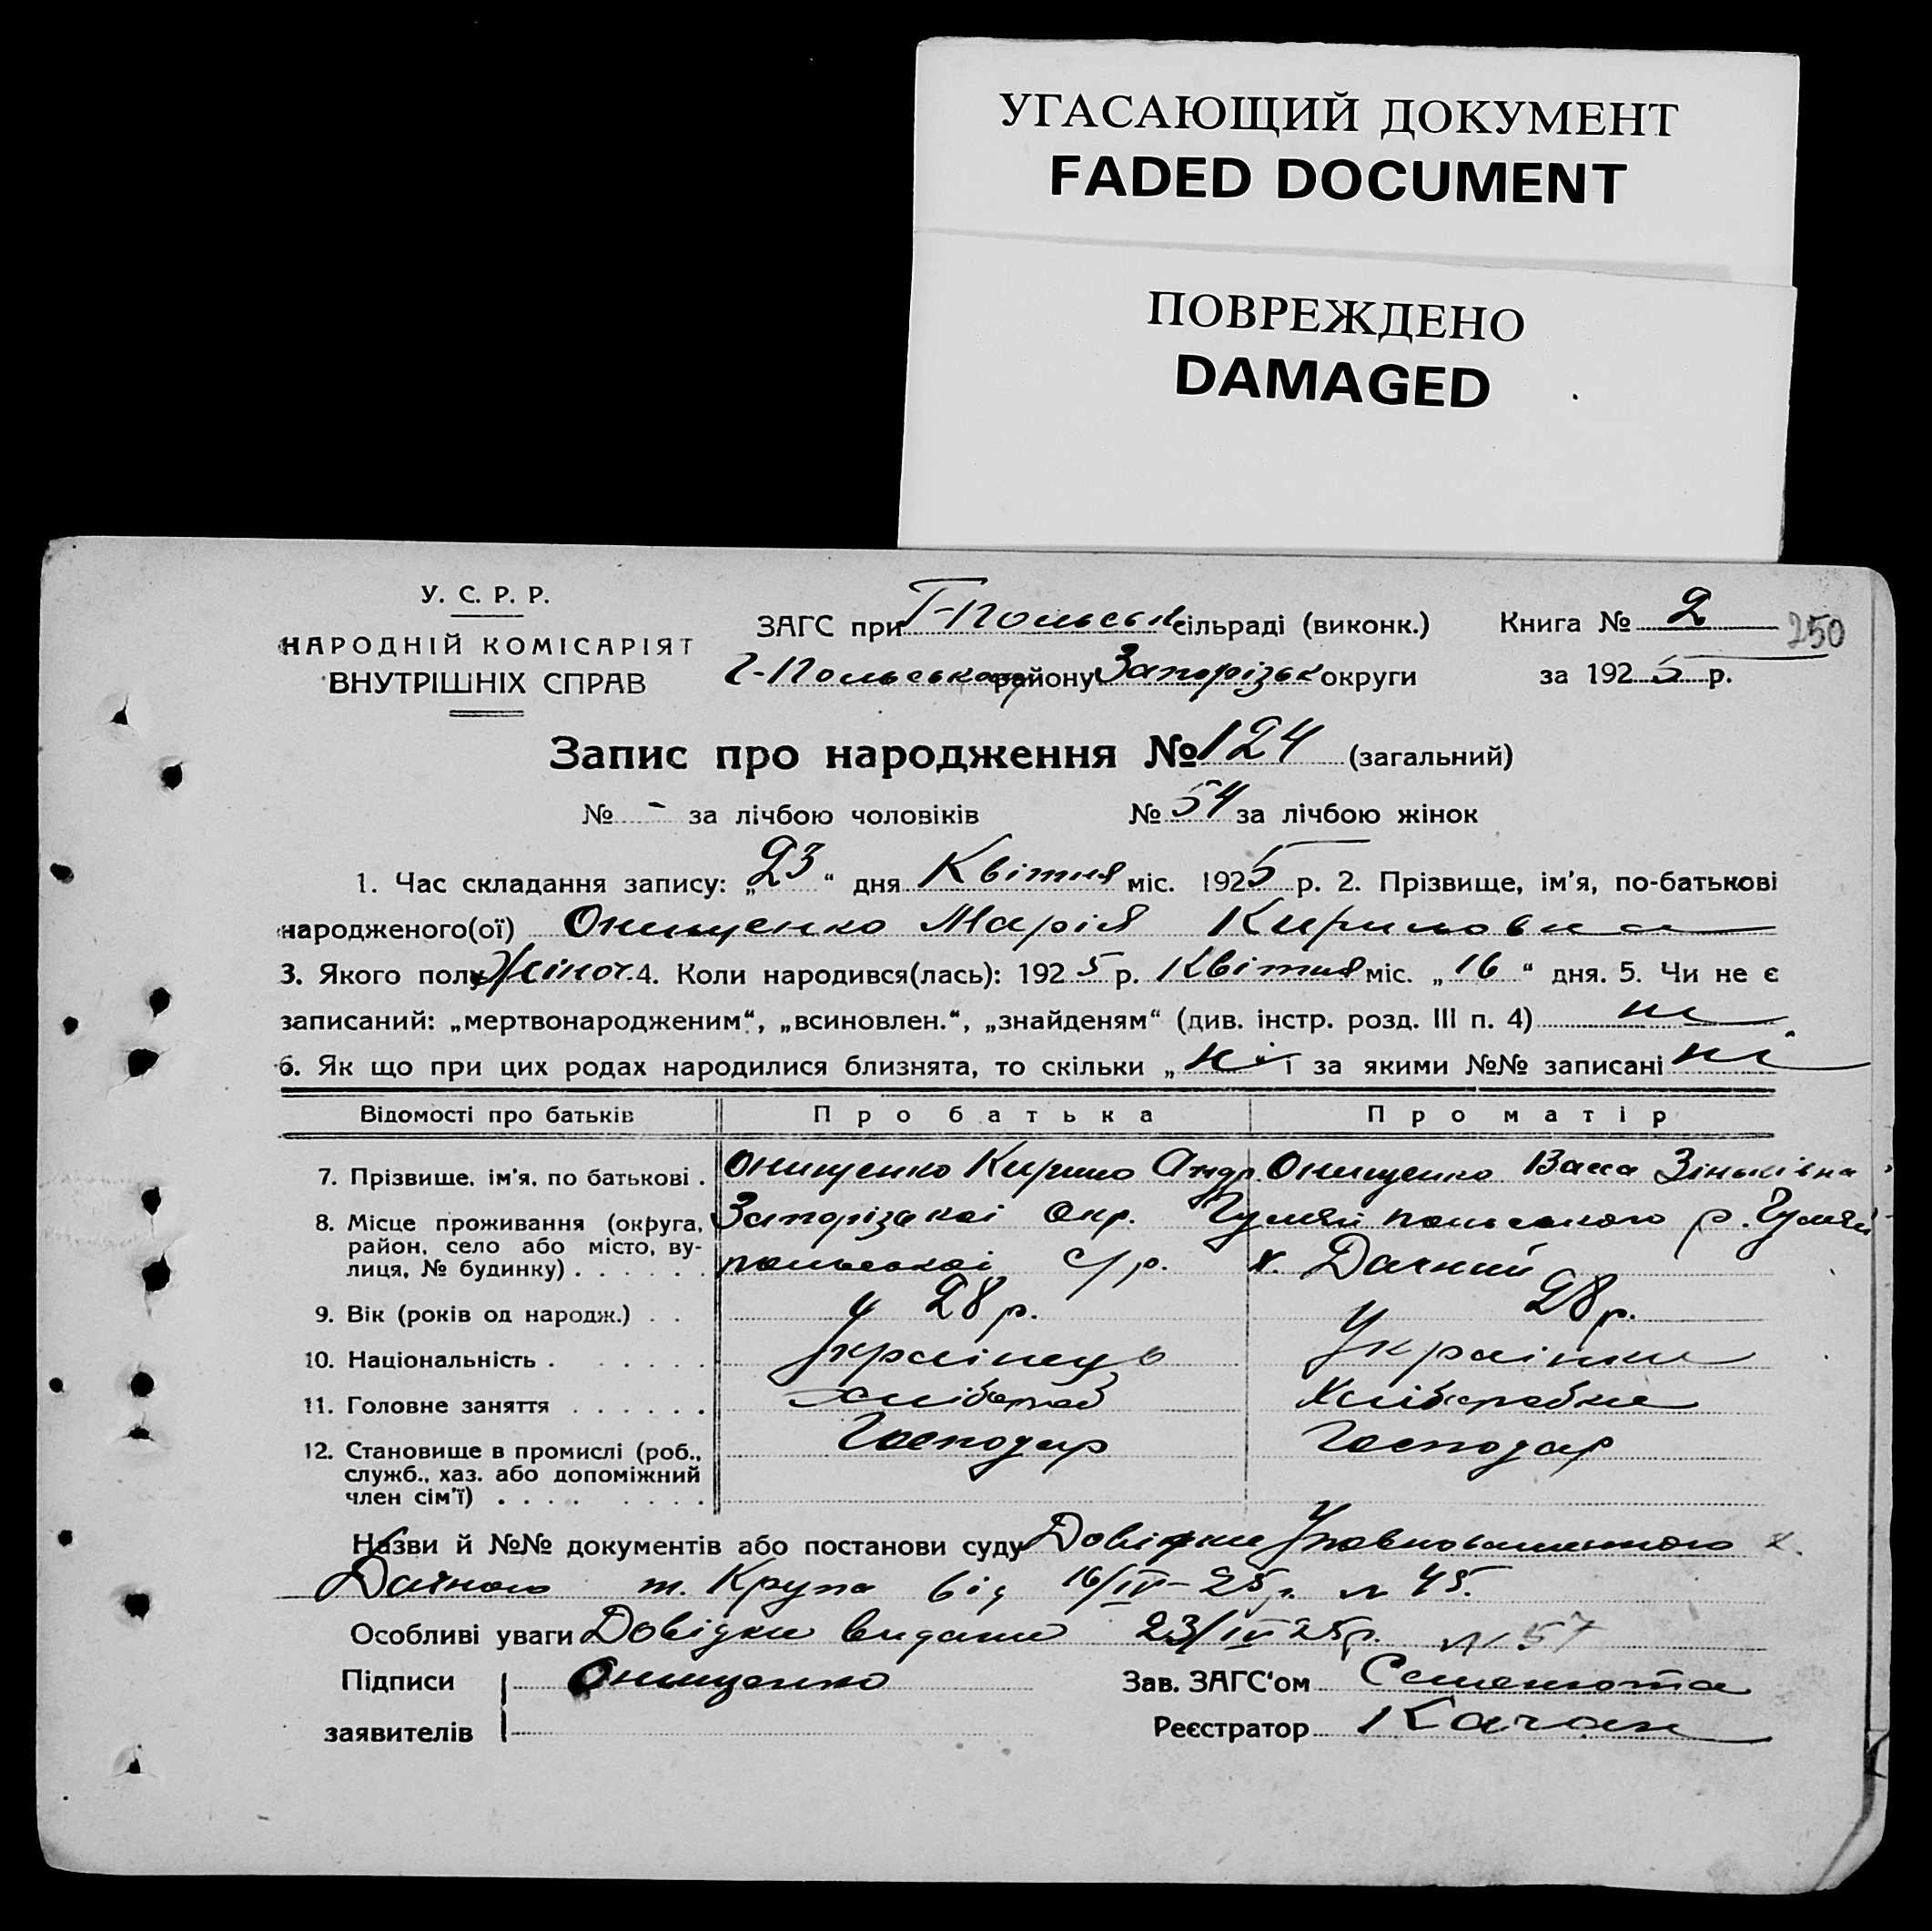 УГАСАЮЩИЙ ДОКУМЕНТ
FADED DOCUMENT
ПОВРЕЖДЕНО
DAMAGED
У. С. Р. Р.
НАРОДНІЙ КОМІСАРІЯТ
ВНУТРІШНІХ СПРАВ
ЗАГС при Г-Польськ сільраді (виконк.)
Г-Польського району Запорізьк округи
Книга № 2
250
за 1925 р.
Запис про народження № 124 (загальний)
№ - за лічбою чоловіків № 54 за лічбою жінок
1. Час складання запису: „23“ дня Квітня міс. 1925 р. 2. Прізвище, ім'я, по-батькові
народженого(ої) Онищенко Марія Кириловна
3. Якого полу Жіноч. 4. Коли народився(лась): 1925 р. Квітня міс. „16“ дня. 5. Чи не є
записаний: „мертвонародженим“, „всиновлен.“, „знайденям“ (див. інстр. розд. III п. 4) ні
6. Як що при цих родах народилися близнята, то скільки „ні“ і за якими №№ записані ні
Відомості про батьків Про батька Про матір
7. Прізвище, ім'я, по батькові . Онищенко Кирило Андр. Онищенко Васса Зіньківна
8. Місце проживання (округа, Запорізької Окр. Гуляй польського р. Гуляй-
район, село або місто, ву-
лиця, № будинку) . . . . . . польської с/р. х. Дачний
9. Вік (років од народж.) . . 28 р. 28 р.
10. Національність . . . . . . Українець Українка
11. Головне заняття . . . . . . хлібороб Хліборобка
12. Становище в промислі (роб., Господар Господар
служб., хаз. або допоміжний
член сім'ї) . . . . . . . .
Назви й №№ документів або постанови суду Довідка Уповноваженного х.
Дачного т. Крупа від 16/IV-25р. № 45.
Особливі уваги Довідка видана 23/IV 25р. № 57
Підписи Онищенко Зав. ЗАГС'ом Семенюта
заявителів Реєстратор Качан